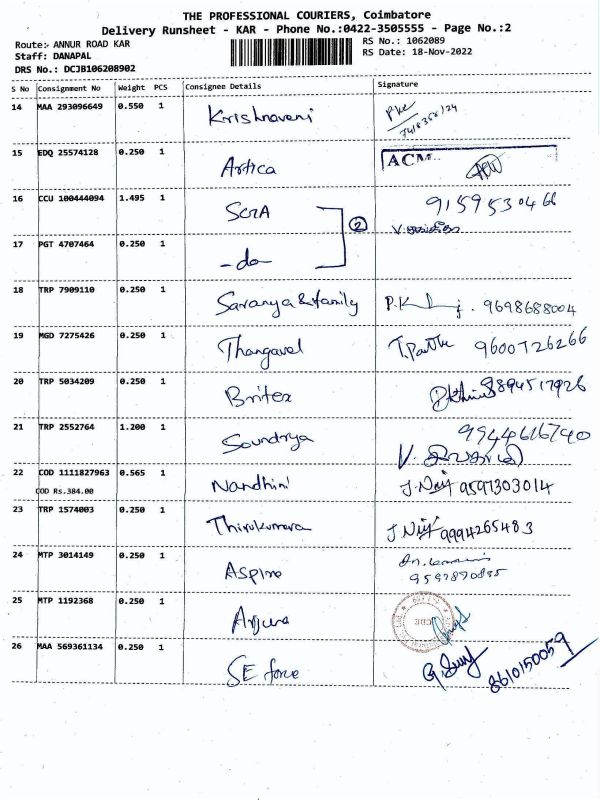 THE PROFESSIONAL COURIERS, Coimbatore
Delivery Runsheet - KAR - Phone No.:0422-3505555 - Page No.:2
Route:- ANNUR ROAD KAR
RS No.: 1062089
Staff: DANAPAL
RS Date: 18-Nov-2022
DRS No.: DCJB106208902
S No Consignment No Weight PCS Consignee Details Signature
14 MAA 293096649 0.550 1 Krishnaveni
15 EDQ 25574128 0.250 1 Artica ACM
16 CCU 100444094 1.495 1 9159530466
2
17 PGT 4707464 0.250 1 -do-
18 TRP 7909110 0.250 1 Saranya & family 9698688004
19 MGD 7275426 0.250 1 Thangavel 9600726266
20 TRP 5034209 0.250 1 Britex 9894517926
21 TRP 2552764 1.200 1 Soundrya 9944616740
22 COD 1111827963 0.565 1 Nandhini 9597303014
COD Rs.384.00
23 TRP 1574003 0.250 1 Thirukumara 9994265483
24 MTP 3014149 0.250 1 Aspire
25 MTP 1192368 0.250 1 Arjuna
26 MAA 569361134 0.250 1 SE force 8610150059